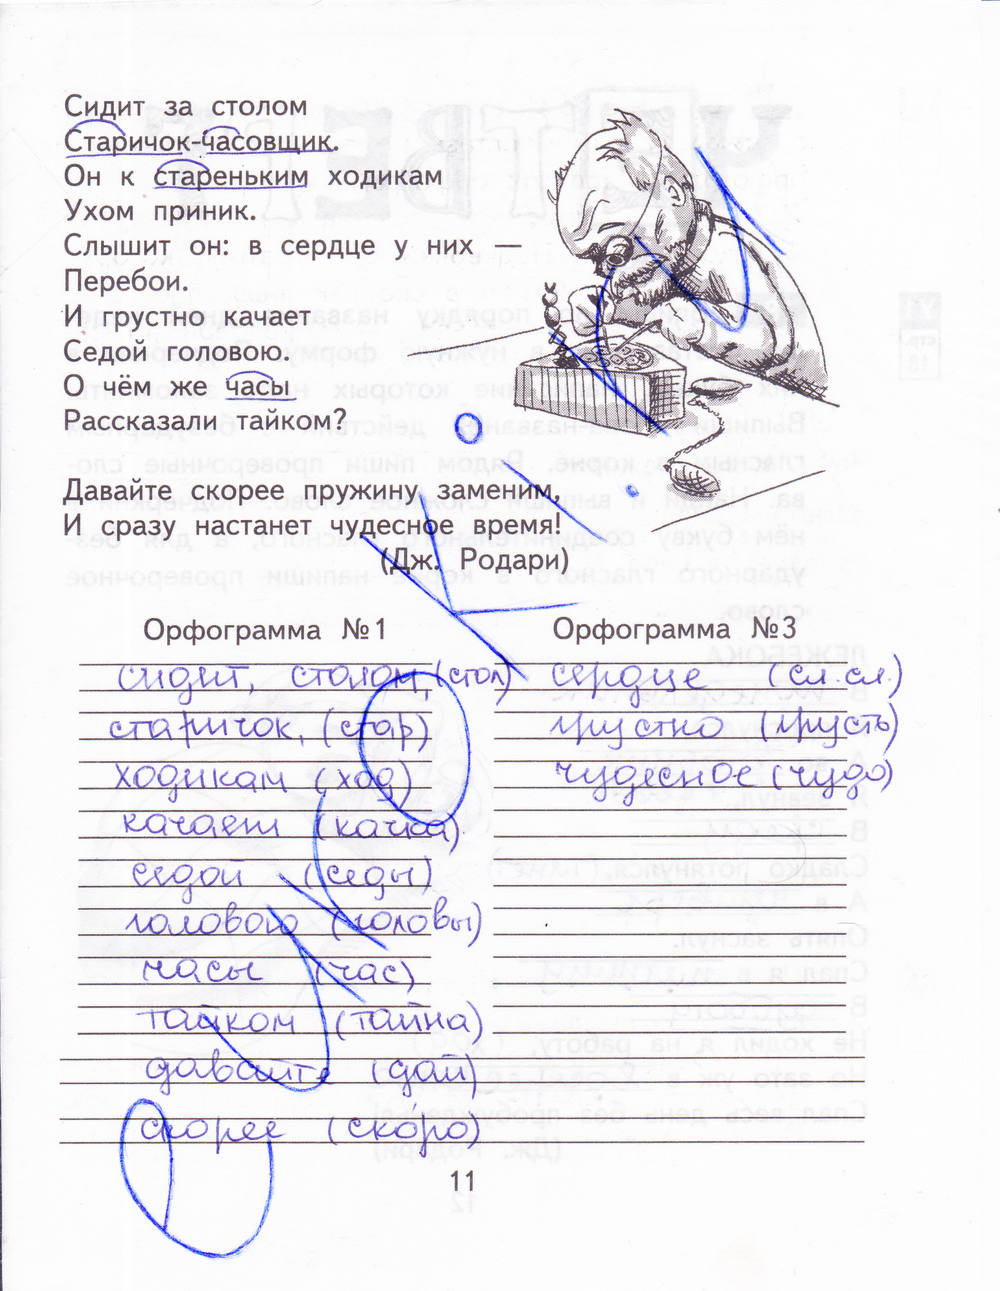 Сидит за столом
Старичок-часовщик.
Он к стареньким ходикам
Ухом приник.
Слышит он: в сердце у них —
Перебои.
И грустно качает
Седой головою.
О чём же часы
Рассказали тайком?
Давайте скорее пружину заменим,
И сразу настанет чудесное время!
(Дж. Родари)
Орфограмма №1
сидит, столом, (стол)
старичок, (стар)
ходикам (ход)
качает (качка)
седой (седы)
головою (головы)
часы (час)
тайком (тайна)
давайте (дай)
скорее (скóро)
Орфограмма №3
сердце (сл. сл.)
грустно (грусть)
чудесное (чудо)
11